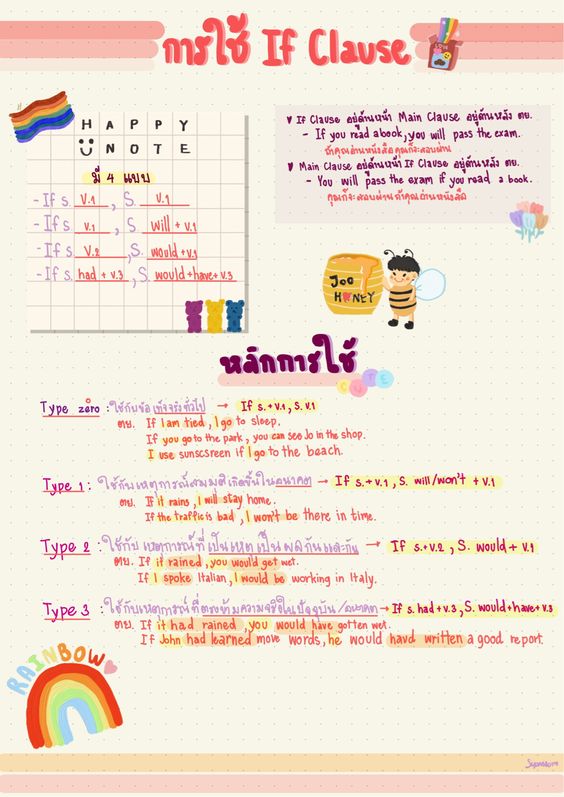 การใช้ If Clause
HAPPY
NOTE
มี 4 แบบ
- If s. v.1, S. v.1
- If s. v.1, S. will + v.1
- If s. v.2, S. would+v.1
- If s. had + v.3, S. would+have+v.3
♥ If Clause อยู่ด้านหน้า Main Clause อยู่ด้านหลัง ตย.
- If you read a book, you will pass the exam.
ถ้าคุณอ่านหนังสือ คุณก็จะสอบผ่าน
♥ Main Clause อยู่ด้านหน้า If Clause อยู่ด้านหลัง ตย.
- You will pass the exam if you read a book.
คุณก็จะสอบผ่าน ถ้าคุณอ่านหนังสือ
JOO
HONEY
หลักการใช้
CUTE
Type zero : ใช้กับข้อเท็จจริงทั่วไป → If s.+v.1, S. v.1
ตย. If I am tied, I go to sleep.
If you go to the park, you can see Jo in the shop.
I use sunscsreen if I go to the beach.
Type 1 : ใช้กับเหตุการณ์สมมติเกิดขึ้นในอนาคต → If s.+v.1, S. will/won't + v.1
ตย. If it rains, I will stay home.
If the traffic is bad, I won't be there in time.
Type 2 : ใช้กับ เหตุการณ์ที่ เป็นเหตุ เป็นผล กันและกัน → If s.+v.2, S. would + v.1
ตย. If it rained, you would get wet.
If I spoke Italian, I would be working in Italy.
Type 3 : ใช้กับเหตุการณ์ที่ตรงข้ามความจริงในปัจจุบัน/อนาคต → If s. had+v.3, S. would+have+v.3
ตย. If it had rained, you would have gotten wet.
If John had learned move words, he would havd written a good report.
RAINBOW